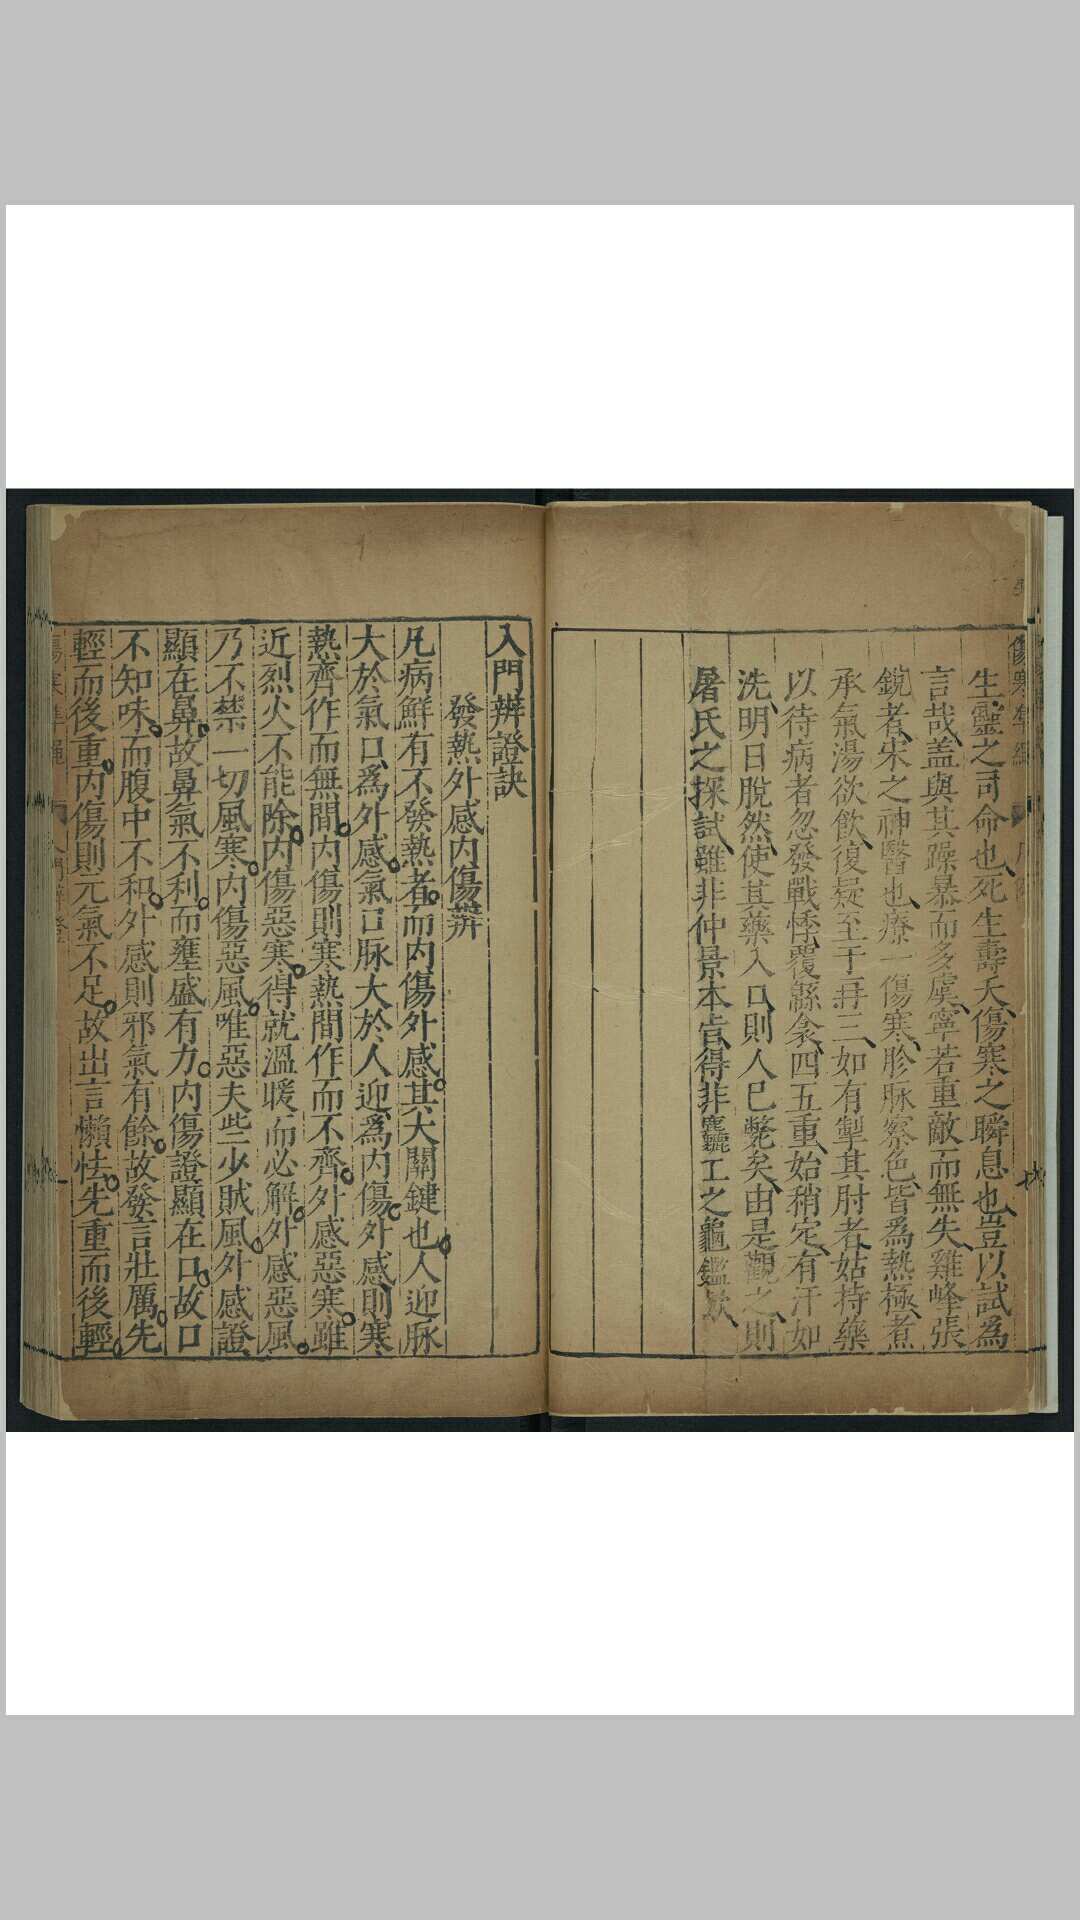 生靈之司命也死生壽夭傷寒之瞬息也豈以試為
言哉蓋與其躁暴而多虞寧若重敵而無失雞峰張
銳者宋之神醫也療一傷寒胗脉察色皆為熱極煮
承氣湯欲飲復疑至于再三如有掣其肘者姑持藥
以待病者忽發戰悸覆緜衾四五重始稍定有汗如
洗明日脫然使其藥入口則人已斃矣由是觀之則
屠氏之探試雖非仲景本旨得非麤工之龜鑑歟
入門辨證訣
發熱外感内傷辨
凡病鮮有不發熱者而内傷外感其大關鍵也人迎脉
大於氣口為外感氣口脉大於人迎為内傷外感則寒
熱齊作而無間内傷則寒熱間作而不齊外感惡寒雖
近烈火不能除内傷惡寒得就溫暖而必解外感惡風
乃不禁一切風寒内傷惡風唯惡夫些少賊風外感證
顯在鼻故鼻氣不利而壅盛有力内傷證顯在口故口
不知味而腹中不和外感則邪氣有餘故發言壯厲先
輕而後重内傷則元氣不足故出言懶怯先重而後輕